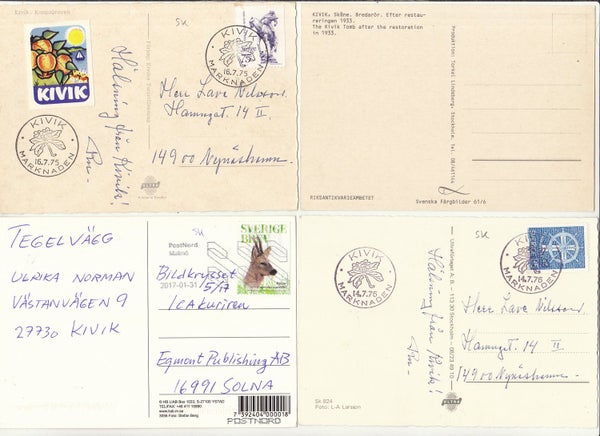 Kivik.
SK
KIVIK
KIVIK
MARKNADEN
16.7.75
KIVIK
MARKNADEN
16.7.75
Hälsning
från Kivik!
Herr Lave Nilsson.
Hamngat. 14 II.
14900 Nynäshamn.
KIVIK. Skåne. Bredarör. Efter restau-
reringen 1933.
The Kivik Tomb after the restoration
in 1933.
Produktion: Torkel Lindeberg, Stockholm. Tel. 08/
RIKSANTIKVARIEÄMBETET
Svenska Färgbilder 61/6
TEGELVÄGG
ULRIKA NORMAN
VÄSTANVÄGEN 9
27730 KIVIK
SK
PostNord
Malmö
2017-01-31
SVERIGE
BREV
Bildkrysset
5/17
ICAkuriren
Egmont Publishing AB
16991 SOLNA
7392404000018
POSTNORD
SK
KIVIK
MARKNADEN
14.7.75
KIVIK
MARKNADEN
14.7.75
Hälsning
från Kivik!
Herr Lave Nilsson.
Hamngat. 14 II
14900 Nynäshamn.
Sk 824
Foto: L-A Larsson